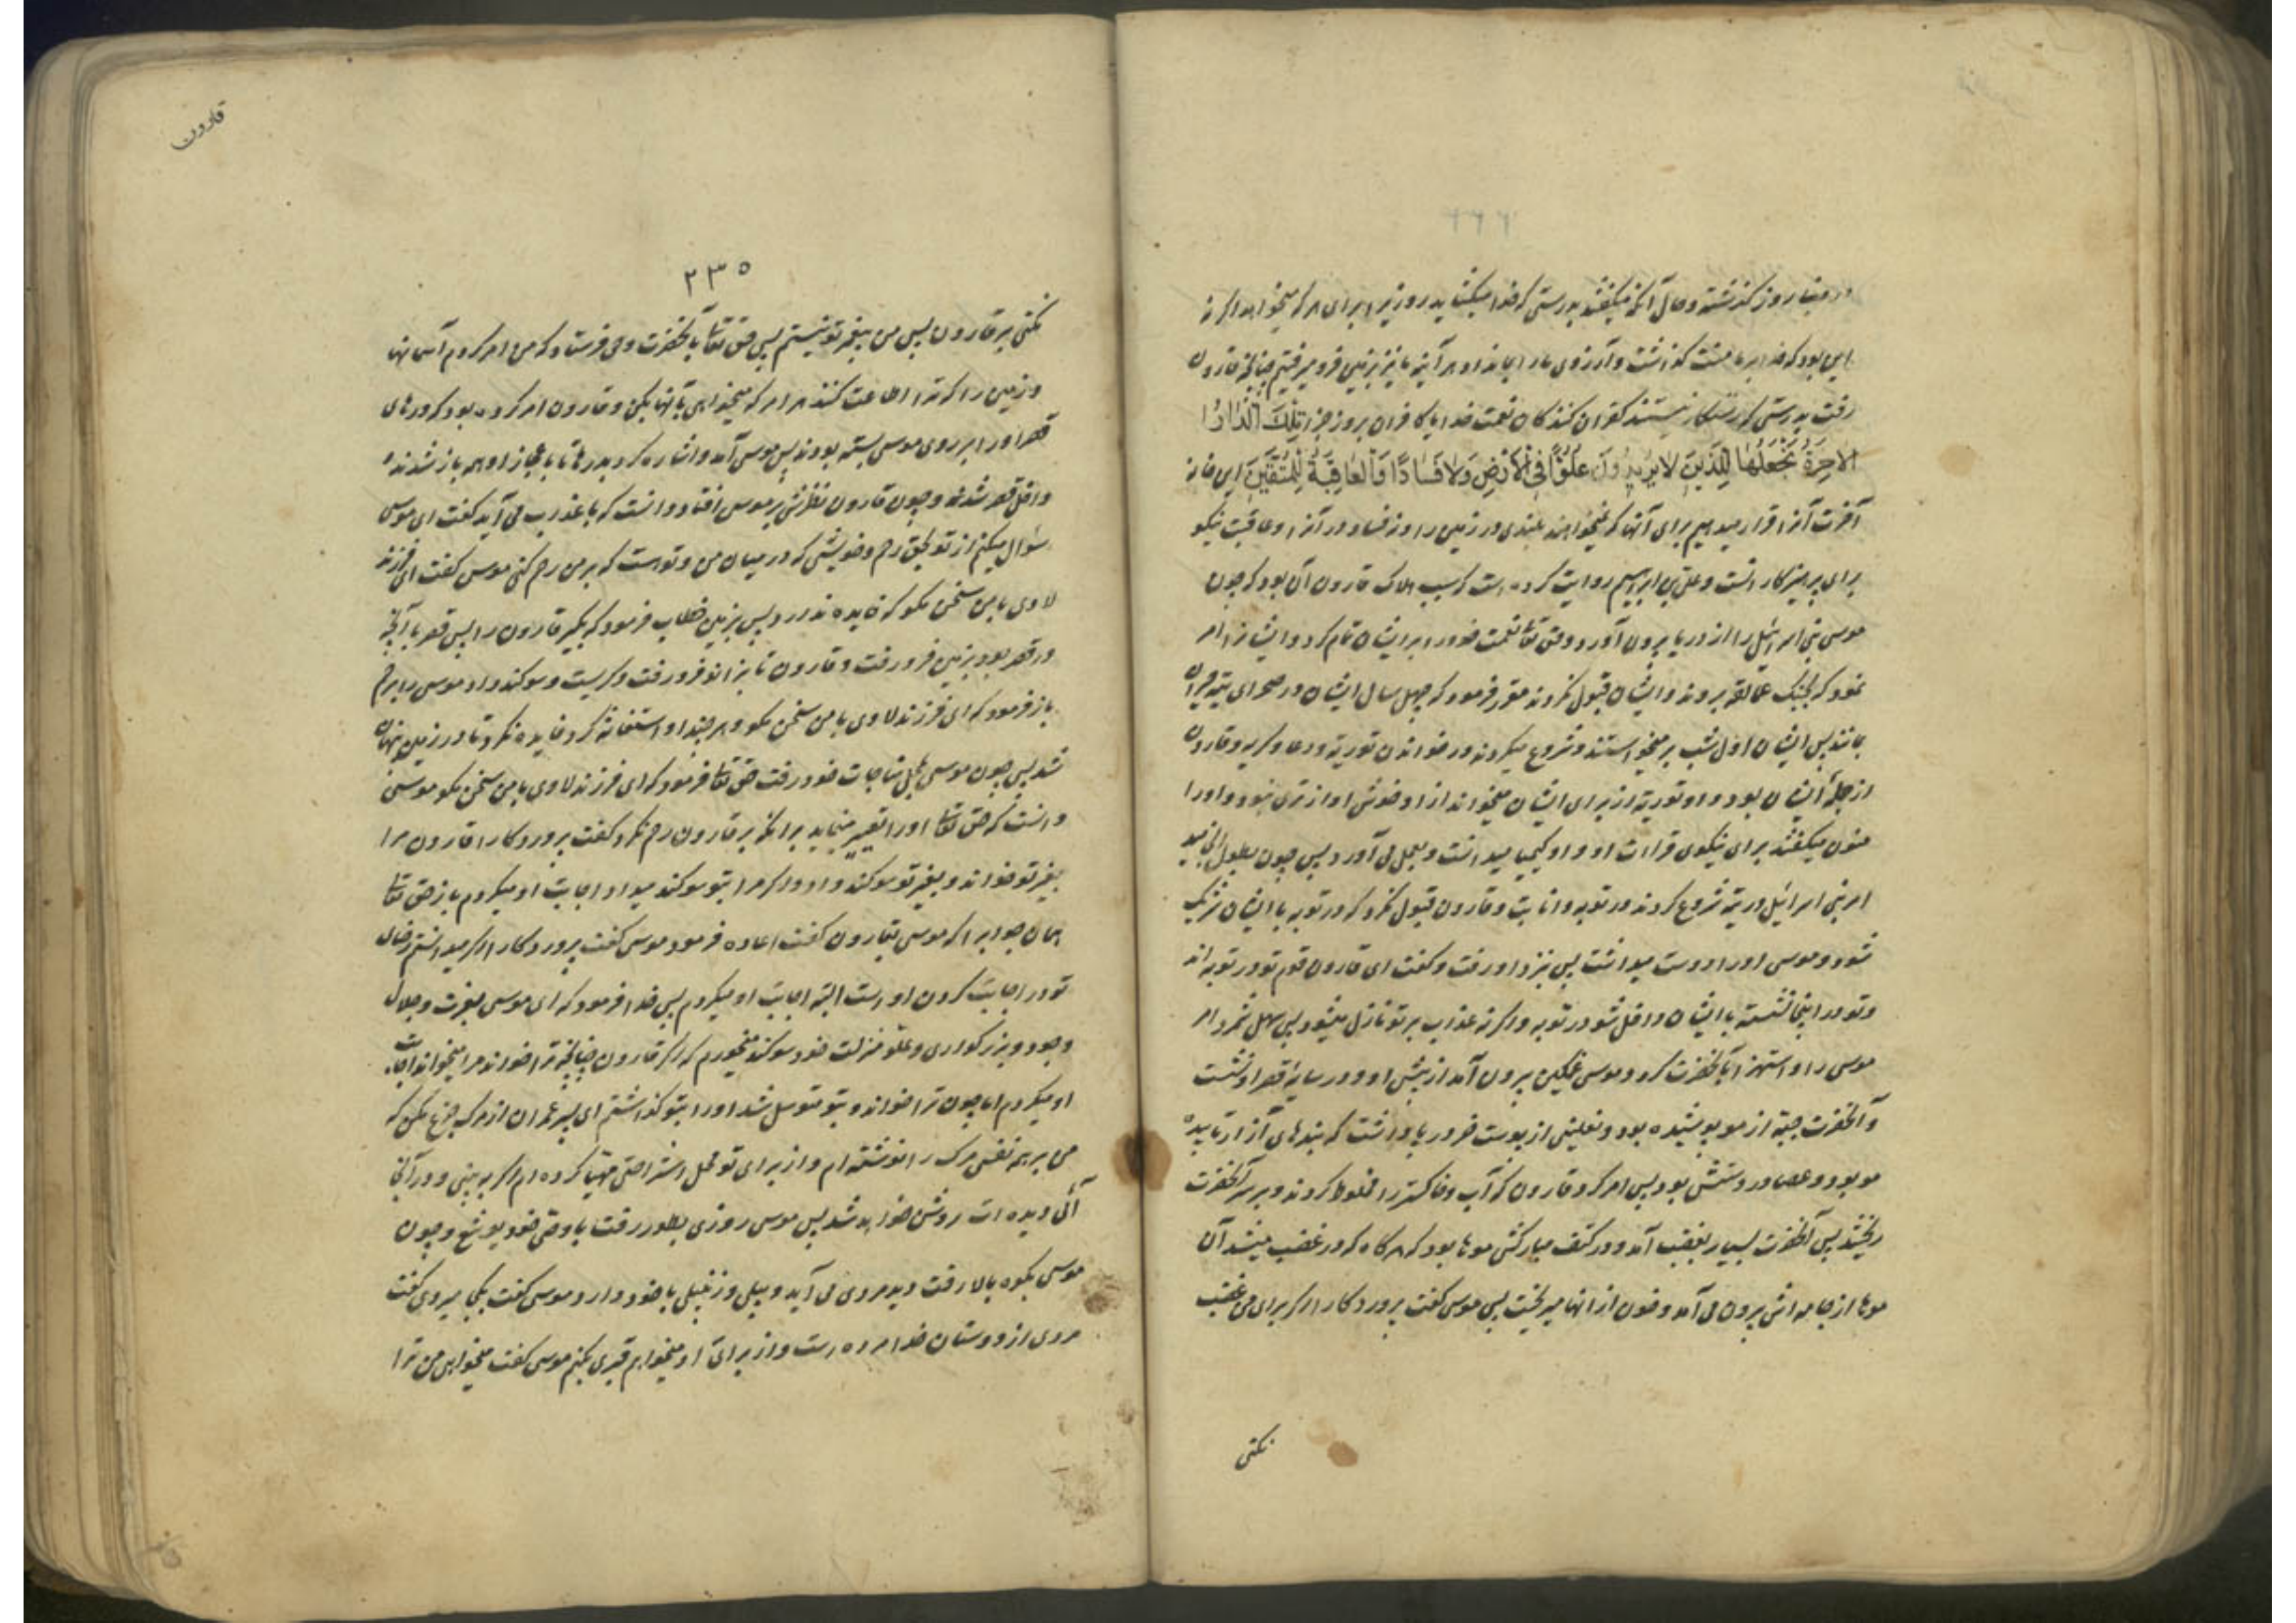 در دینار روز گذشته و حال آنکه میگفتند بدرستی که خدا میگشاید روزی را برای هر که میخواهد اگر نه
این بود که خدا بر ما منت گذاشت و آرزوی ما را بما نداد هر آینه ما نیز بزمین فرو میرفتیم چنانچه قارون
رفت بدرستی که رستگار نیستند کفران کنندگان نعمت خدا یا کافران بروز جزا تِلْكَ الدّارُ
الاخِرَةُ نَجْعَلُهَا لِلَّذِينَ لا يُرِيدُونَ عُلُوًّا فِي الْأَرْضِ وَلا فَسَادًا وَالْعَاقِبَةُ لِلْمُتَّقِينَ این خانه
آخرت آنرا قرار میدهیم برای آنها که نمیخواهند بلندی در زمین را و نه فساد در آنرا و عاقبت نیکو
برای پرهیزکار انست و علی بن ابراهیم روایت کرده است که سبب هلاک قارون آن بود که چون
موسی بنی اسرائیل را از دریا بیرون آورد و حق تعالی نعمت خود را بر ایشان تمام کرد و ایشانرا امر
نمود که بجنگ عمالقه بروند و ایشان قبول نکردند مقرر فرمود که چهل سال ایشان در صحرای تیه حیران
بمانند پس ایشان اول شب بر میخواستند و شروع میکردند در خواندن توریة و دعا و گریه و قارون
از جمله ایشان بود و او توریة از برای ایشان میخواند از او خوش آوازتری نبود و او را
منون میگفتند برای نیکوی قراءت او و او کیمیا میدانست و بعمل می آورد پس چون بطول انجامید
امر بنی اسرائیل در تیه شروع کردند در توبه و انابت و قارون قبول نکرد که در توبه با ایشان شریک
شود و موسی او را دوست میداشت پس بنزد او رفت و گفت ای قارون قوم تو در توبه اند
و تو در اینجا نشسته با ایشان داخل شو در توبه و اگر نه عذاب بر تو نازل میشود پس سهل شمرد امر
موسی را و استهزا بآنحضرت کرد و موسی غمگین بیرون آمد از پیش او و در سایهٔ قصر او نشست
و آنحضرت جبّه از مو پوشیده بود و نعلینی از پوست خر در پا داشت که بندهای آن از تابیده
مو بود و عصا در دستش بود پس امر کرد قارون که آب و خاکستر را مخلوط کردند و بر سر آنحضرت
ریختند پس آنحضرت بسیار بغضب آمد و در کتف مبارکش موها بود که هرگاه که در غضب میشد آن
موها از جامه اش بیرون می آمد و خون از آنها میریخت پس موسی گفت پروردگارا اگر برای من غضب
نکنی
قارون
٢٣٥
نکنی بر قارون پس من پیغمبر تو نیستم پس حق تعالی بآنحضرت وحی فرستاد که من امر کردم آسمانها
و زمین را که ترا اطاعت کنند هر امر که میخواهی بآنها بکن و قارون امر کرده بود که درهای
قصر او را بر روی موسی بسته بودند پس موسی آمد و اشاره کرد بدرها تا باعجاز او همه باز شدند
داخل قصر شد و چون قارون نظرش بر موسی افتاد دانست که با عذاب می آید گفت ای موسی
سؤال میکنم از تو بحق رحم و خویشی که در میان من و تو است که بر من رحم کنی موسی گفت ای فرزند
لاوی با من سخن مگو که فایده ندارد پس بزمین خطاب فرمود که بگیر قارون را پس قصر با آنچه
در قصر بود بزمین فرو رفت و قارون تا بزانو فرو رفت و گریست و سوگند داد موسی را برحم
باز فرمود که ای فرزند لاوی با من سخن مگو و هر چند او استغاثه کرد فایده نکرد تا در زمین پنهان
شد پس چون موسی بمحل مناجات خود رفت حق تعالی فرمود که ای فرزند لاوی با من سخن مگو موسی
دانست که حق تعالی او را تعییر مینماید برانکه بر قارون رحم نکرد گفت پروردگارا قارون مرا
بغیر تو خواند و بغیر تو سوگند داد و اگر مرا بتو سوگند میداد اجابت او میکردم باز حق تعالی
همان جواب را که موسی بقارون گفت اعاده فرمود موسی گفت پروردگارا اگر میدانستم رضای
تو در اجابت کردن او است البته اجابت او میکردم پس خدا فرمود که ای موسی بعزت و جلال
و جود و بزرگواری و علوّ منزلت خود سوگند میخورم که اگر قارون چنانچه ترا خواند مرا میخواند اجابت
او میکردم اما چون ترا خواند و بتو متوسل شد او را بتو گذاشتم ای پسر عمران از مرگ جزع مکن که
من بر همه نفسی مرگ را نوشته ام و از برای تو محل استراحتی مهیا کرده ام که اگر به بینی و در آنجا
آئی دیده ات روشن خواهد شد پس موسی روزی بطور رفت با وصیّ خود یوشع و چون
موسی بکوه بالا رفت دید مردی می آید و بیلی و زنبیلی با خود دارد موسی گفت بکجا میروی گفت
مردی از دوستان خدا مرده است و از برای او میخواهم قبری بکنم موسی گفت میخواهی من ترا